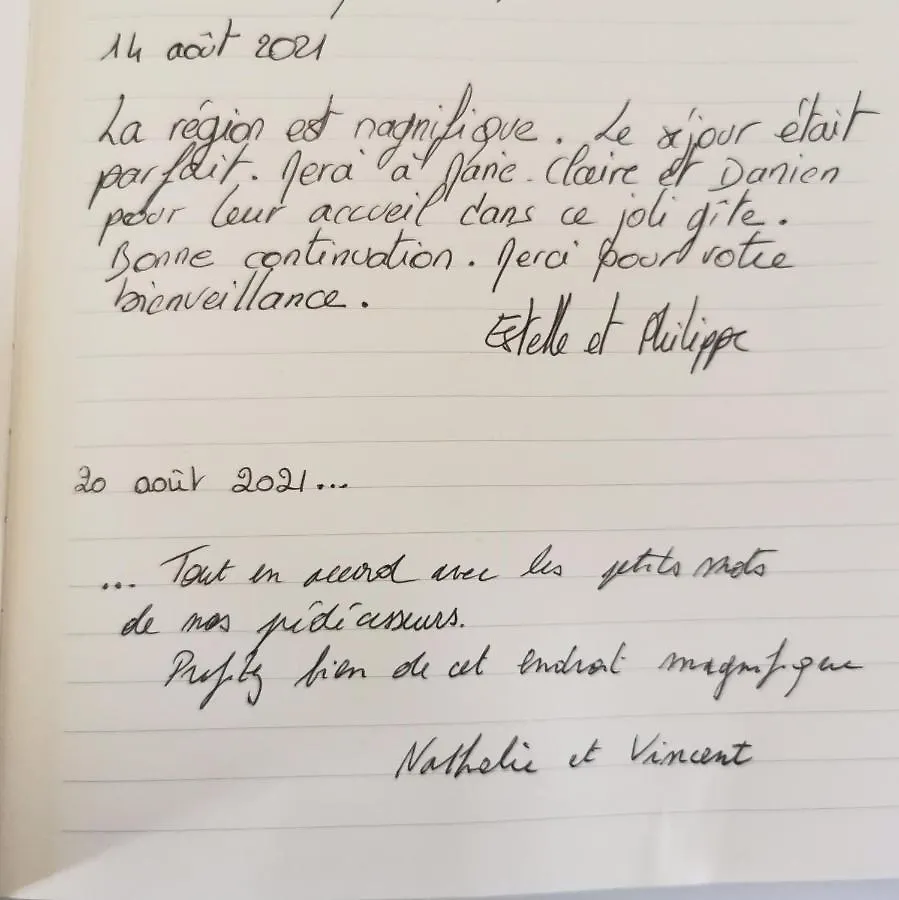 14 août 2021
La région est magnifique. Le séjour était
parfait. Merci à Marie-Claire et Damien
pour leur accueil dans ce joli gîte.
Bonne continuation. Merci pour votre
bienveillance.
Estelle et Philippe
20 août 2021...
... Tout en accord avec les petits mots
de nos prédécesseurs.
Profitez bien de cet endroit magnifique
Nathalie et Vincent